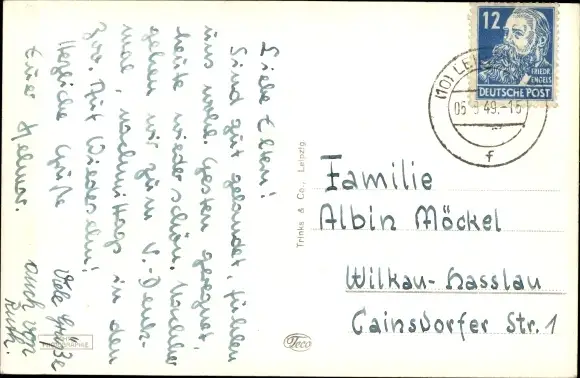 Liebe Eltern!
Sind gut gelandet, fühlen
uns wohl. Gestern geregnet,
heute wieder schön. Nachher
gehen wir zum V.-Denk-
mal, nachmittags in den
Zoo. Auf Wiedersehn!
Herzliche Grüße
Euer Helmar.
Viele Grüße
auch von
Ruth.
Trinks & Co., Leipzig
Teco
12
FRIEDR.
ENGELS
DEUTSCHE POST
(10) LEI
49.-15
f
Familie
Albin Möckel
Wilkau-Hasslau
Cainsdorfer Str. 1